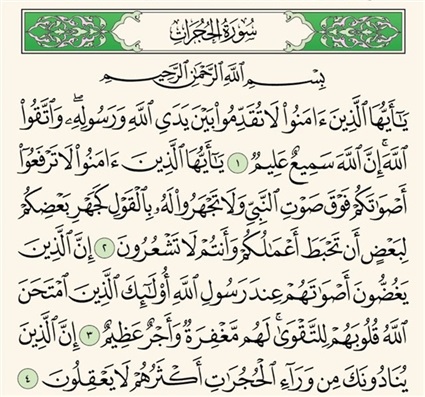 سُورَةُ الحُجُرَاتِ
بِسْمِ اللَّهِ الرَّحْمَٰنِ الرَّحِيمِ
يَٰٓأَيُّهَا الَّذِينَ ءَامَنُوا۟ لَا تُقَدِّمُوا۟ بَيْنَ يَدَىِ اللَّهِ وَرَسُولِهِۦۖ وَاتَّقُوا۟
اللَّهَۚ إِنَّ اللَّهَ سَمِيعٌ عَلِيمٌ ١ يَٰٓأَيُّهَا الَّذِينَ ءَامَنُوا۟ لَا تَرْفَعُوٓا۟
أَصْوَٰتَكُمْ فَوْقَ صَوْتِ النَّبِىِّ وَلَا تَجْهَرُوا۟ لَهُۥ بِالْقَوْلِ كَجَهْرِ بَعْضِكُمْ
لِبَعْضٍ أَن تَحْبَطَ أَعْمَٰلُكُمْ وَأَنتُمْ لَا تَشْعُرُونَ ٢ إِنَّ الَّذِينَ
يَغُضُّونَ أَصْوَٰتَهُمْ عِندَ رَسُولِ اللَّهِ أُو۟لَٰٓئِكَ الَّذِينَ امْتَحَنَ
اللَّهُ قُلُوبَهُمْ لِلتَّقْوَىٰۚ لَهُم مَّغْفِرَةٌ وَأَجْرٌ عَظِيمٌ ٣ إِنَّ الَّذِينَ
يُنَادُونَكَ مِن وَرَآءِ الْحُجُرَٰتِ أَكْثَرُهُمْ لَا يَعْقِلُونَ ٤